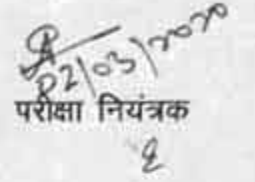 02/03/2020
परीक्षा नियंत्रक